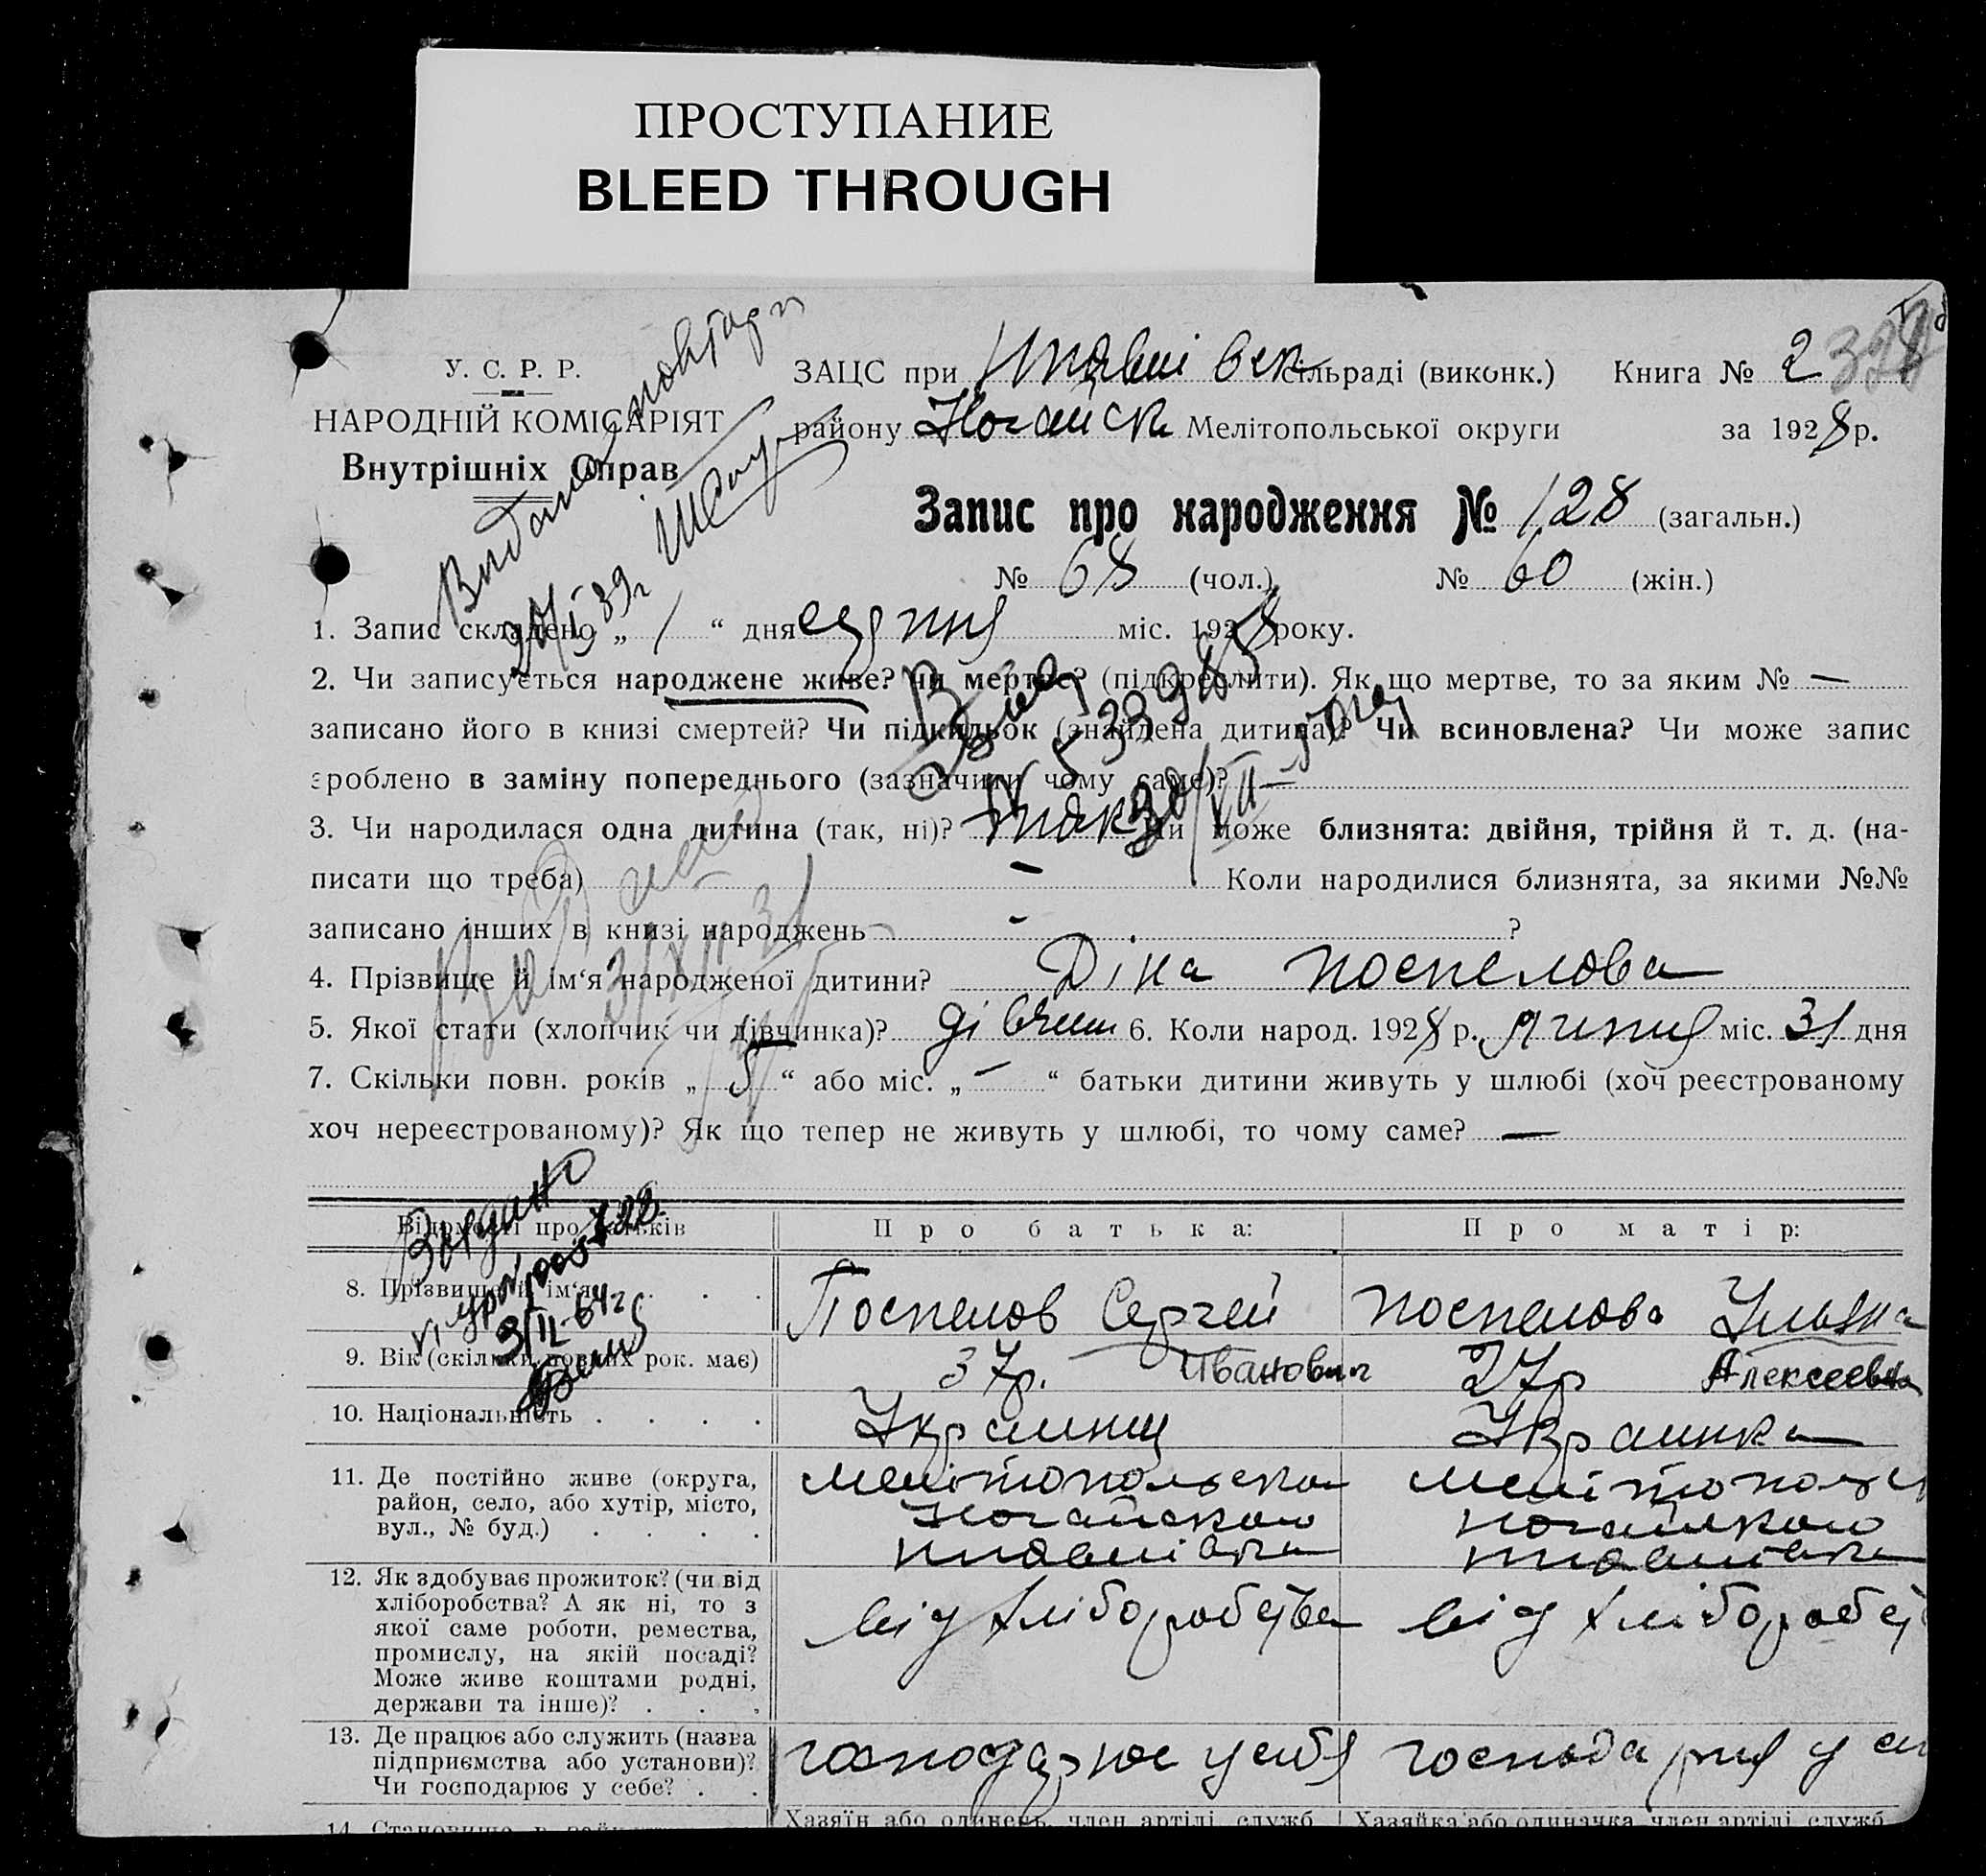 ПРОСТУПАНИЕ
BLEED THROUGH
У. С. Р. Р.
НАРОДНІЙ КОМІСАРІЯТ
Внутрішніх Справ
ЗАЦС при сільраді (виконк.) Книга № 2
району Ногайськ Мелітопольської округи за 1928 р.
Запис про народження № 128 (загальн.)
№ 68 (чол.) № 60 (жін.)
1. Запис складено „ 1 “ дня серпня міс. 1928 року.
2. Чи записується народжене живе? чи мертве? (підкреслити). Як що мертве, то за яким № —
записано його в книзі смертей? Чи підкидьок (знайдена дитина)? Чи всиновлена? Чи може запис
зроблено в заміну попереднього (зазначити чому саме)?
3. Чи народилася одна дитина (так, ні)? так Чи може близнята: двійня, трійня й т. д. (на-
писати що треба) — Коли народилися близнята, за якими №№
записано інших в книзі народжень - ?
4. Прізвище й ім‘я народженої дитини? Діна Поспелова
5. Якої стати (хлопчик чи дівчинка)? 6. Коли народ. 1928 р. липня міс. 31 дня
7. Скільки повн. років „ 5 “ або міс. „ — “ батьки дитини живуть у шлюбі (хоч реєстрованому
хоч нереєстрованому)? Як що тепер не живуть у шлюбі, то чому саме? —
Відомості про батьків Про батька: Про матір:
8. Прізвище й ім‘я . . . Поспелов Сергей Поспелова Ульяна
9. Вік (скільки повних рок. має) 37р. Иванович 27р Алексеевна
10. Національність . . . . Украинец Украинка
11. Де постійно живе (округа,
район, село, або хутір, місто,
вул., № буд.) . . . .
12. Як здобуває прожиток? (чи від
хліборобства? А як ні, то з
якої саме роботи, ремества,
промислу, на якій посаді?
Може живе коштами родні,
держави та інше)? . . .
від хліборобства
13. Де працює або служить (назва
підприємства або установи)?
Чи господарює у себе? . .
господарює у себя
Хазяїн або одинець, член артілі, служб. Хазяйка або одиначка, член артілі, служб.